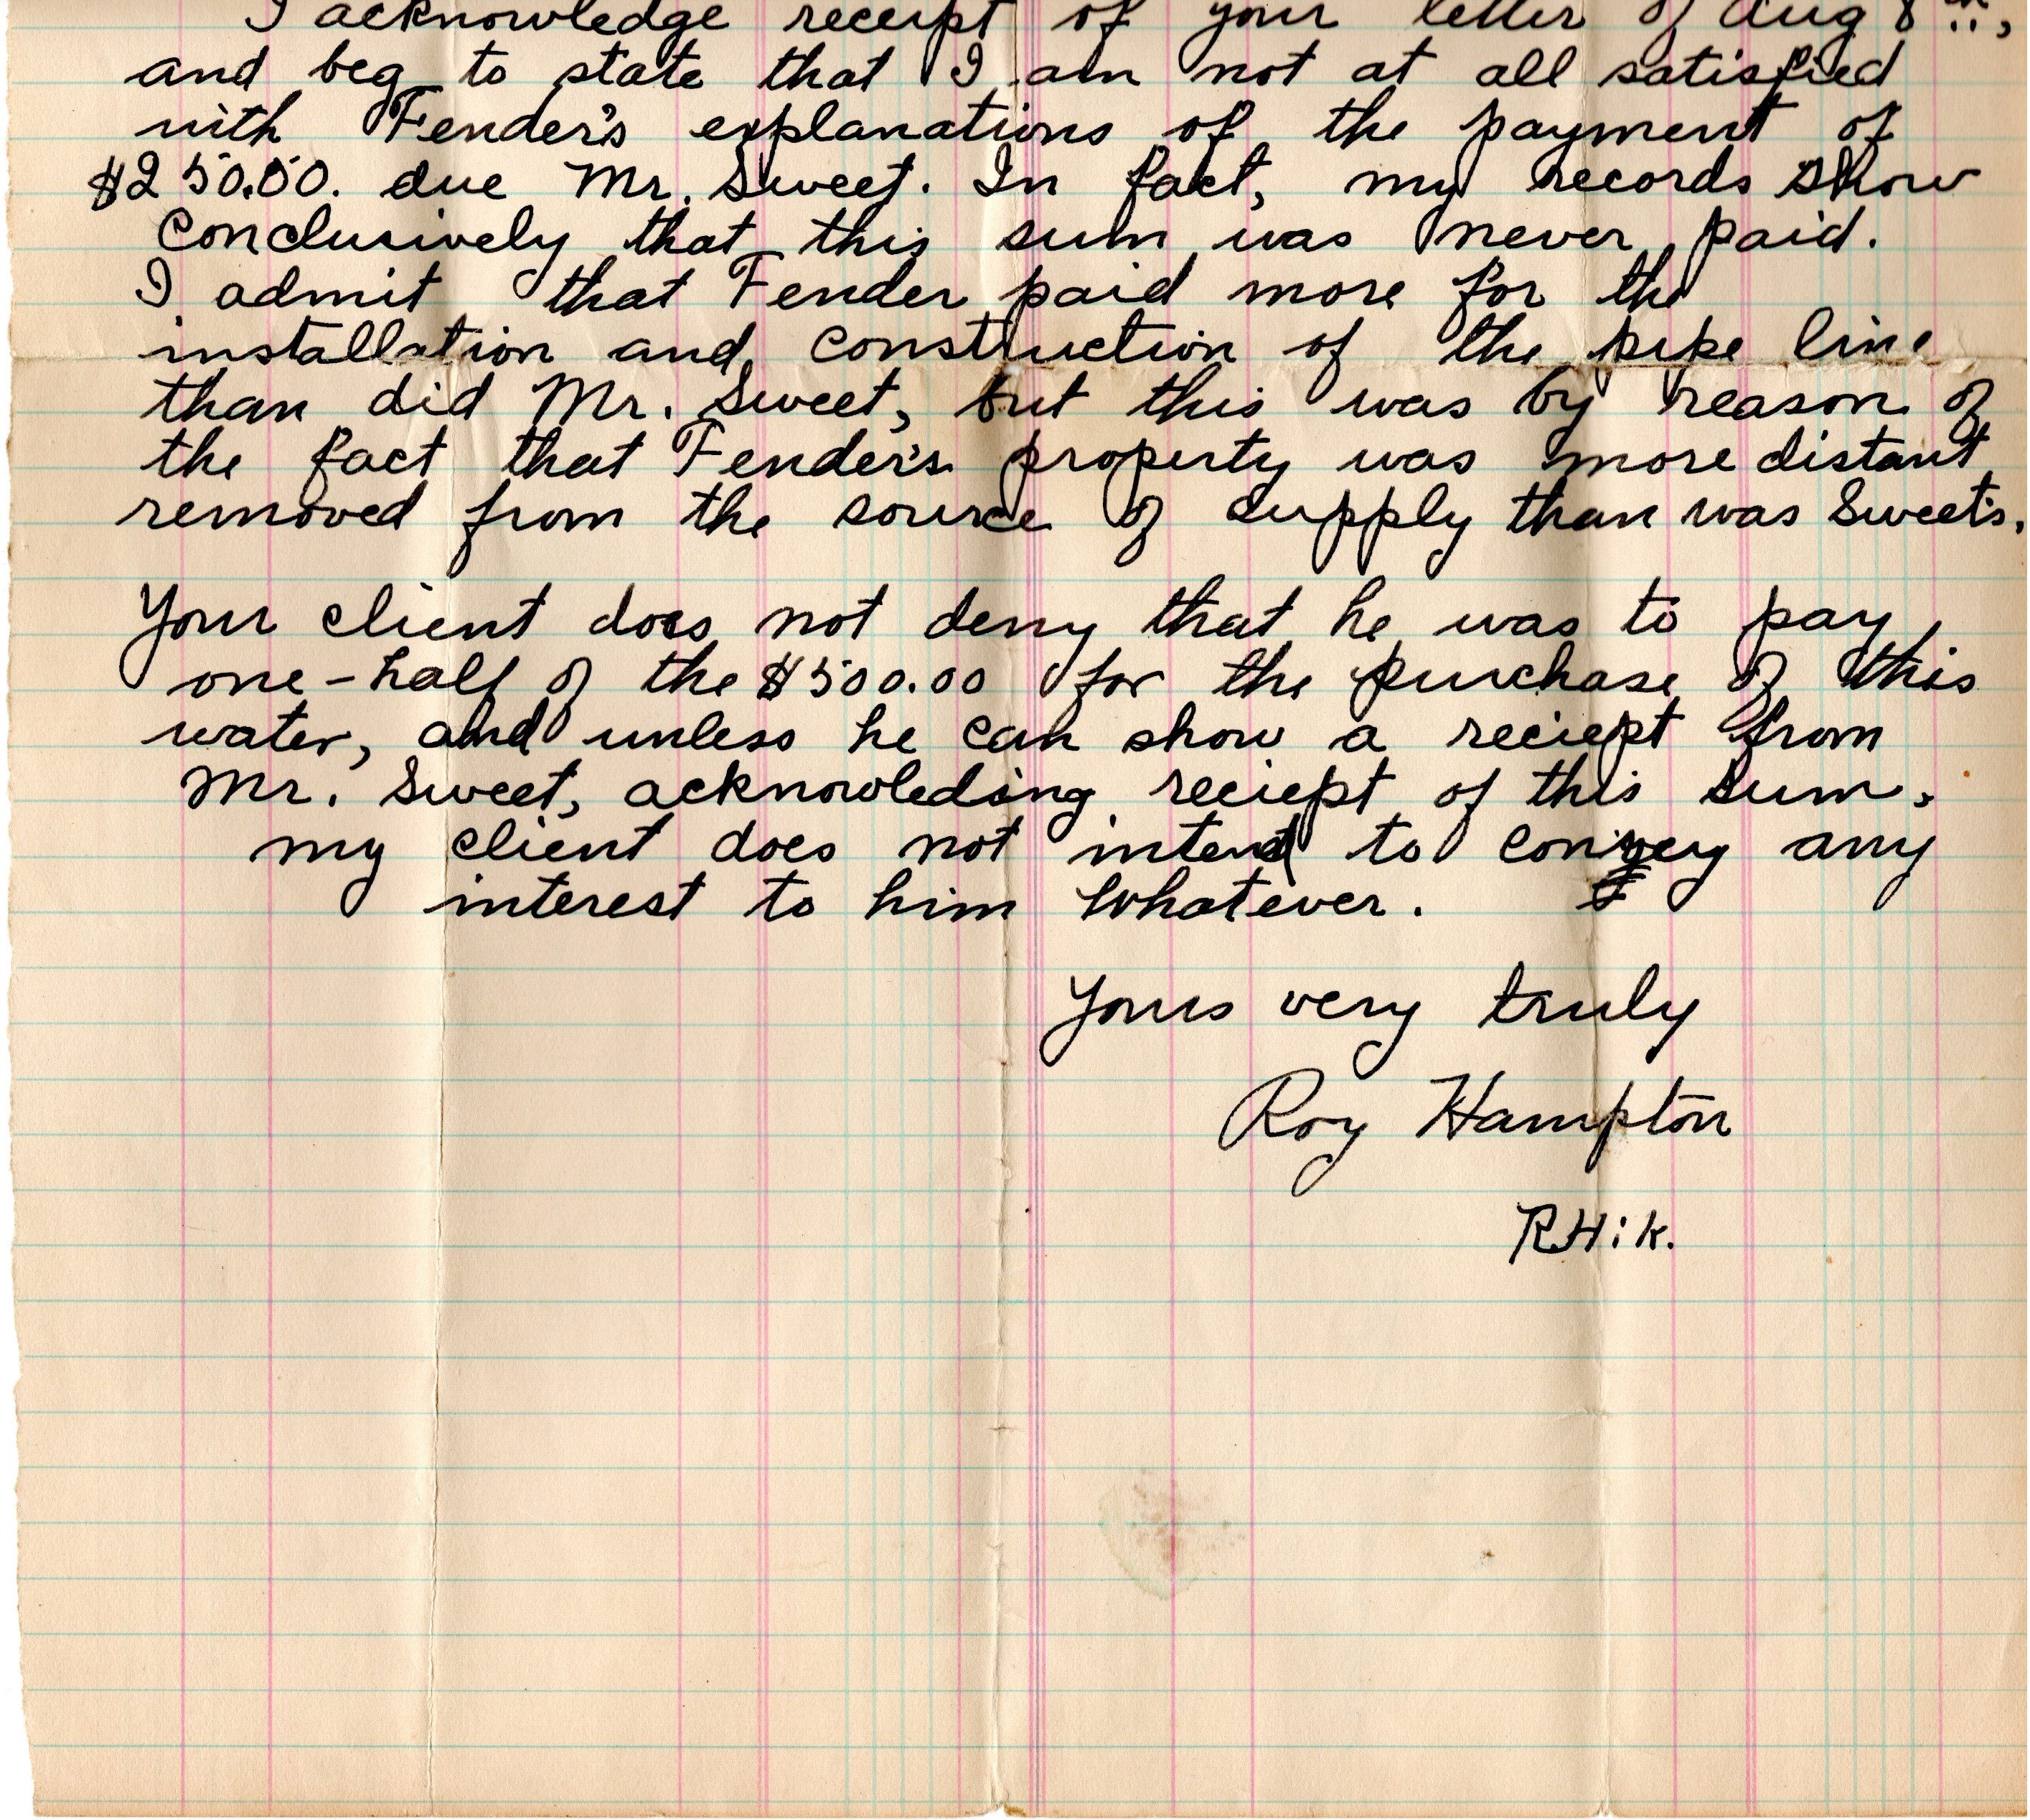 I acknowledge receipt of your letter of Aug 8th,
and beg to state that I am not at all satisfied
with Fender's explanations of the payment of
$250.00. due Mr. Sweet. In fact, my records show
conclusively that this sum was never paid.
I admit that Fender paid more for the
installation and construction of the pipe line
than did Mr. Sweet, but this was by reason of
the fact that Fender's property was more distant
removed from the source of supply than was Sweet's.
Your client does not deny that he was to pay
one-half of the $500.00 for the purchase of this
water, and unless he can show a reciept from
Mr. Sweet, acknowleding reciept of this sum,
my client does not intend to convey any
interest to him whatever.
Yours very truly
Roy Hampton
RH:k.